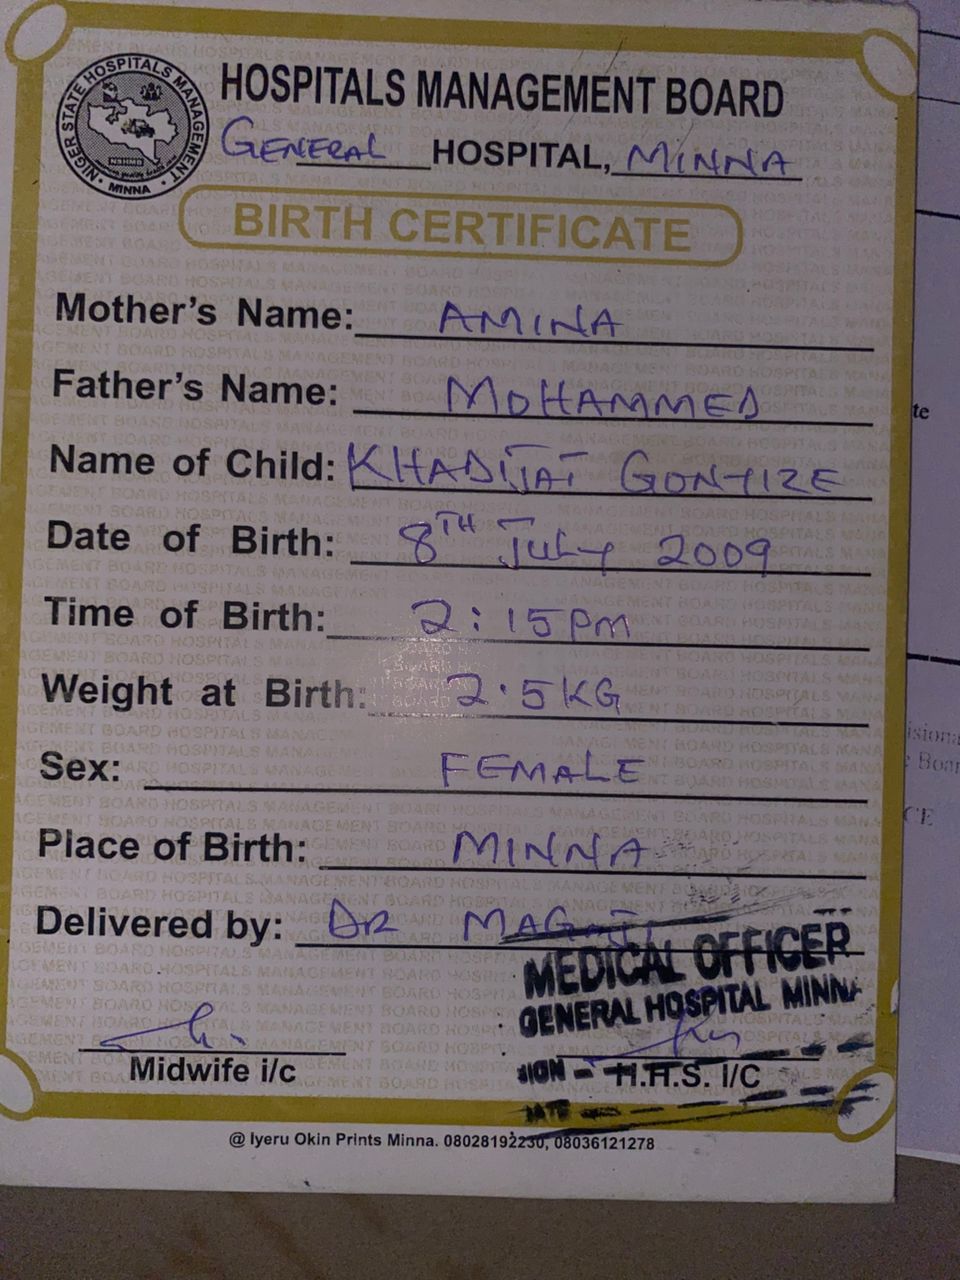 HOSPITALS MANAGEMENT BOARD
GENERAL HOSPITAL, MINNA
NIGER STATE HOSPITALS MANAGEMENT
MINNA
BIRTH CERTIFICATE
Mother's Name: AMINA
Father's Name: MOHAMMED
Name of Child: KHADIJAT GONTIZE
Date of Birth: 8TH July 2009
Time of Birth: 2:15PM
Weight at Birth: 2.5KG
Sex: FEMALE
Place of Birth: MINNA
Delivered by: DR MAGAJI
MEDICAL OFFICER
GENERAL HOSPITAL MINNA
SIGN
Midwife i/c
H.H.S. I/C
DATE
@ Iyeru Okin Prints Minna. 08028192230, 08036121278
te